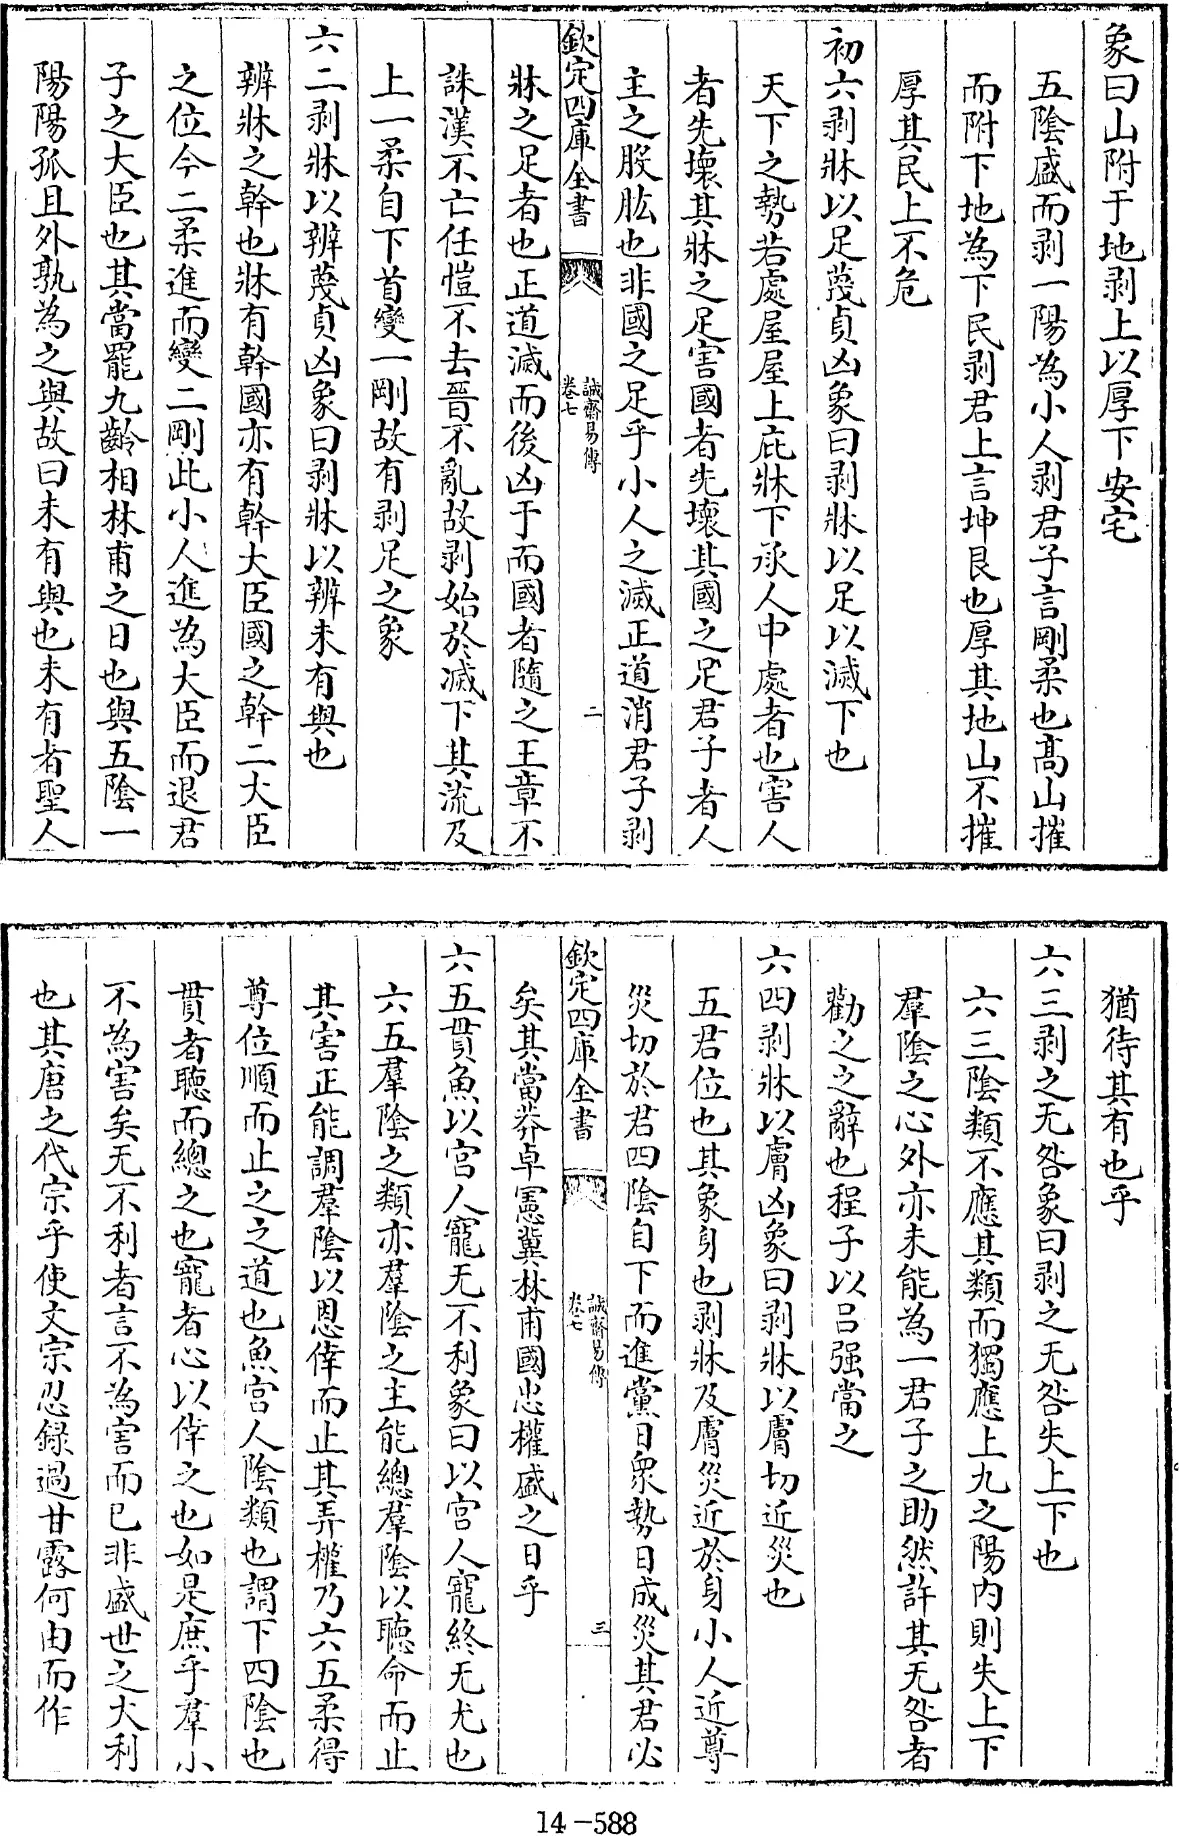 象曰山附于地剥上以厚下安宅
五隂盛而剥一陽為小人剥君子言剛柔也髙山摧
而附下地為下民剥君上言坤艮也厚其地山不摧
厚其民上不危
初六剥牀以足蔑貞凶象曰剥牀以足以滅下也
天下之勢若處屋屋上庇牀下承人中處者也害人
者先壊其牀之足害國者先壊其國之足君子者人
主之股肱也非國之足乎小人之滅正道消君子剥
欽定四庫全書
誠齋易傳
卷七
二
牀之足者也正道滅而後凶于而國者隨之王章不
誅漢不亡任愷不去晉不亂故剥始於滅下其流及
上一柔自下首變一剛故有剥足之象
六二剥牀以辨蔑貞凶象曰剥牀以辨未有與也
辨牀之幹也牀有幹國亦有幹大臣國之幹二大臣
之位今二柔進而變二剛此小人進為大臣而退君
子之大臣也其當罷九齡相林甫之日也與五隂一
陽陽孤且外孰為之與故曰未有與也未有者聖人
猶待其有也乎
六三剥之无咎象曰剥之无咎失上下也
六三隂類不應其類而獨應上九之陽内則失上下
羣隂之心外亦未能為一君子之助然許其无咎者
勸之之辭也程子以吕强當之
六四剥牀以膚凶象曰剥牀以膚切近災也
五君位也其象身也剥牀及膚災近於身小人近尊
災切於君四隂自下而進黨日衆勢日成災其君必
欽定四庫全書
誠齋易傳
卷七
三
矣其當莽卓冀林甫國忠權盛之日乎
六五貫魚以宫人寵无不利象曰以宫人寵終无尤也
六五羣隂之類亦羣隂之主能總羣隂以聽命而止
其害正能調羣隂以恩倖而止其弄權乃六五柔得
尊位順而止之之道也魚宫人隂類也謂下四隂也
貫者聽而總之也寵者心以倖之也如是庶乎羣小
不為害矣无不利者言不為害而已非盛世之大利
也其唐之代宗乎使文宗忍録過甘露何由而作
14-588